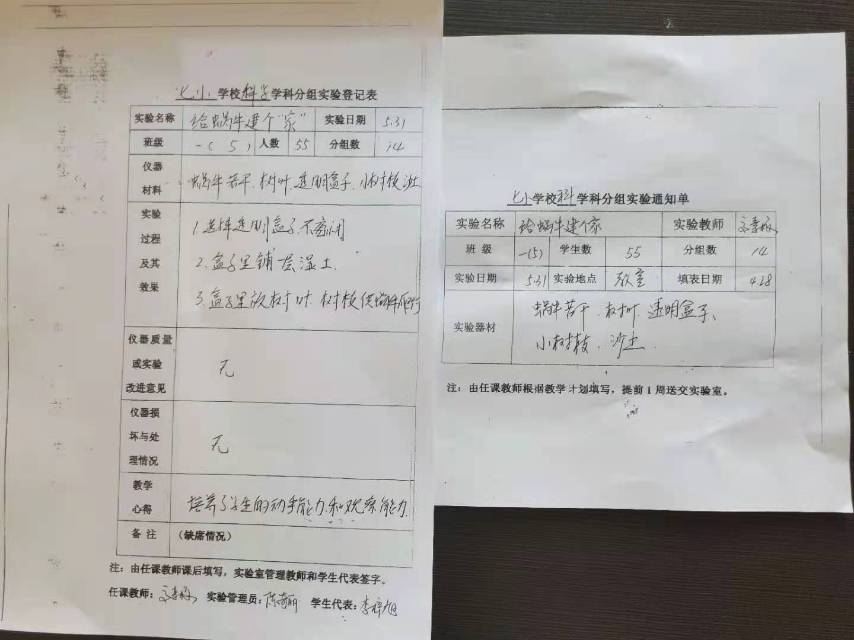 七小学校科学学科分组实验登记表
实验名称 给蜗牛建个“家” 实验日期 5.31
班级 一(5) 人数 55 分组数 14
仪器材料 蜗牛若干、树叶、透明盒子、小树枝、沙土
实验过程及其效果
1.选择透明盒子不密闭
2.盒子里铺层湿土
3.盒子里放树叶、树枝供蜗牛爬行
仪器质量或实验改进意见 无
仪器损坏与处理情况 无
教学心得 培养了学生的动手能力和观察能力
备注 (缺席情况)
注:由任课教师课后填写,实验室管理教师和学生代表签字。
任课教师: 实验管理员: 学生代表:
七小学校科学科分组实验通知单
实验名称 给蜗牛建个家 实验教师
班级 一(5) 学生数 55 分组数 14
实验日期 5.31 实验地点 教室 填表日期 4.28
实验器材 蜗牛若干、树叶、透明盒子、
小树枝、沙土
注:由任课教师根据教学计划填写,提前1周送交实验室。